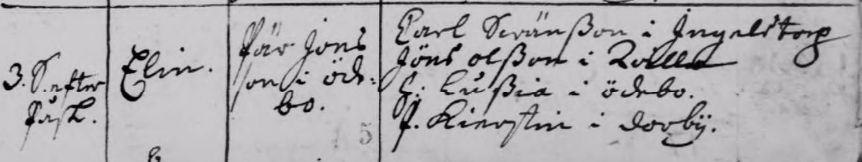 3. S. efter
Påsk.
Elin.
Pär Jöns
son i öde-
bo.
Carl Svänßon i Ingelstorp
Jöns olßon i
H. Lußia i ödebo.
P. Kierstin i dorby.
5